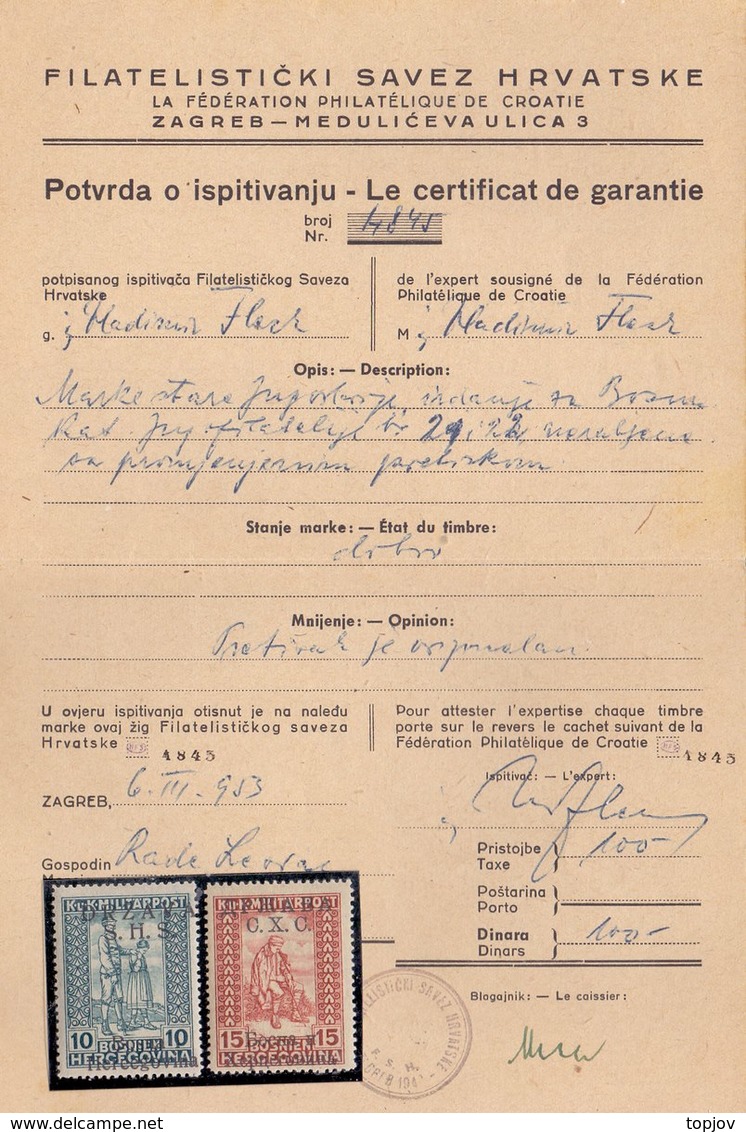 FILATELISTIČKI SAVEZ HRVATSKE
LA FÉDÉRATION PHILATÉLIQUE DE CROATIE
ZAGREB — MEDULIĆEVA ULICA 3
Potvrda o ispitivanju - Le certificat de garantie
broj
Nr. 4845
potpisanog ispitivača Filatelističkog Saveza
Hrvatske
g. Vladimir Fleck
de l'expert sousigné de la Fédération
Philatélique de Croatie
M Vladimir Fleck
Opis: — Description:
Marke stare Jugoslavije izdanje za Bosnu
Kat. Jugofilatelije br. i 22
sa promjenjenim pretiskom.
Stanje marke: — État du timbre:
dobro
Mnijenje: — Opinion:
Pretisak je originalan.
U ovjeru ispitivanja otisnut je na naleđu
marke ovaj žig Filatelističkog saveza
Hrvatske 4845
Pour attester l'expertise chaque timbre
porte sur le revers le cachet suivant de la
Fédération Philatélique de Croatie 4845
Ispitivač: — L'expert:
ZAGREB, 6. III. 953
Gospodin Rade
Pristojbe
Taxe
100-
Poštarina
Porto
Dinara
Dinars
100-
Blagajnik: — Le caissier:
K.u.K. MILITÄRPOST
DRŽAVA
S. H. S.
10 10
BOSNIEN
HERCEGOVINA
Hercegovina
K.u.K. MILITÄRPOST
ДРЖАВА
С. Х. С.
15 15
Босна и
BOSNIEN
HERCEGOVINA
Херцеговина
FILATELISTIČKI SAVEZ HRVATSKE
F. S. H.
topjov